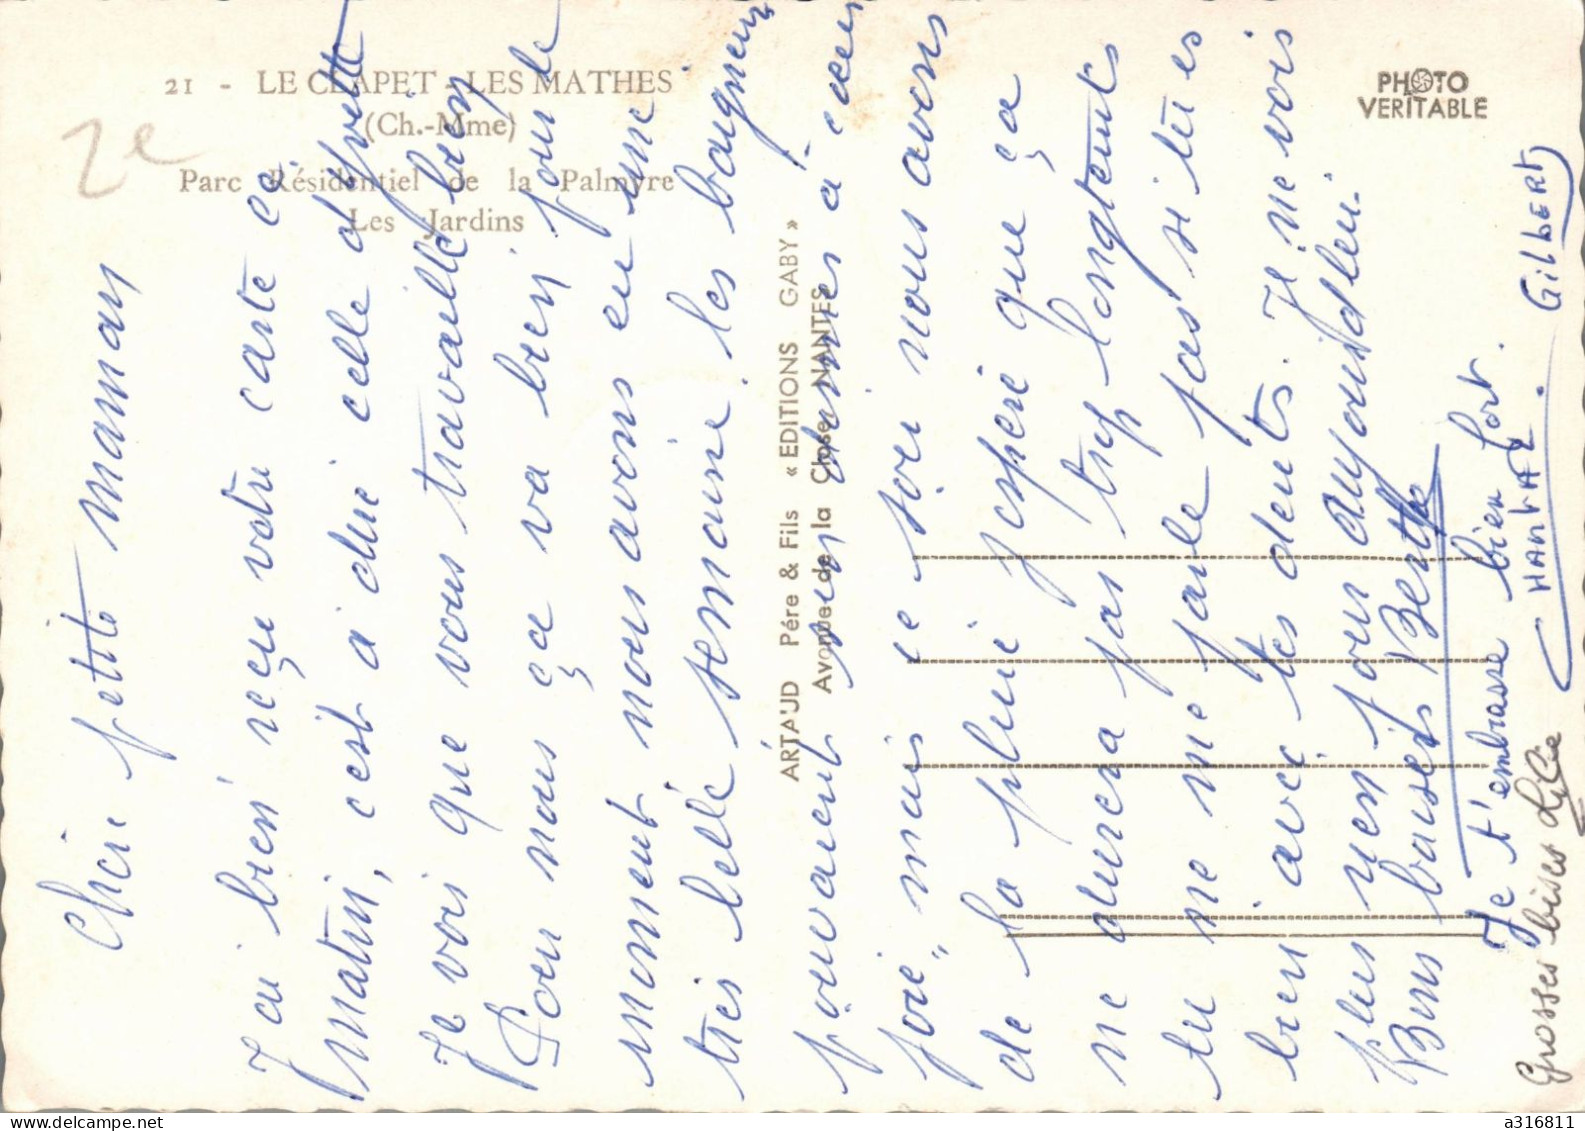 21 - LE CLAPET - LES MATHES
(Ch.-Mme)
Parc Résidentiel de la Palmyre
Les Jardins
PHOTO
VERITABLE
2e
ARTAUD Père & Fils « EDITIONS GABY »
Avenue de la Close NANTES
Chère petite maman
J'ai bien reçu votre carte ce
matin, c'est à dire celle d'Yvette
Je vois que vous travaillé bien
Pour nous ça va bien pour le
moment nous avons eu une
très belle semaine. les baigneurs
pouvaient s'en donner à coeur
joie, mais ce soir nous avons
de la pluie j'espère que ça
ne durera pas trop longtemps
tu ne me parle pas si tu es
bien avec tes dents. Je ne vois
plus rien pour aujourd'hui.
Bons baisers Berthe
Je t'embrasse bien fort.
CHANTAL. GilbERT
Grosses bises Lylie
a316811